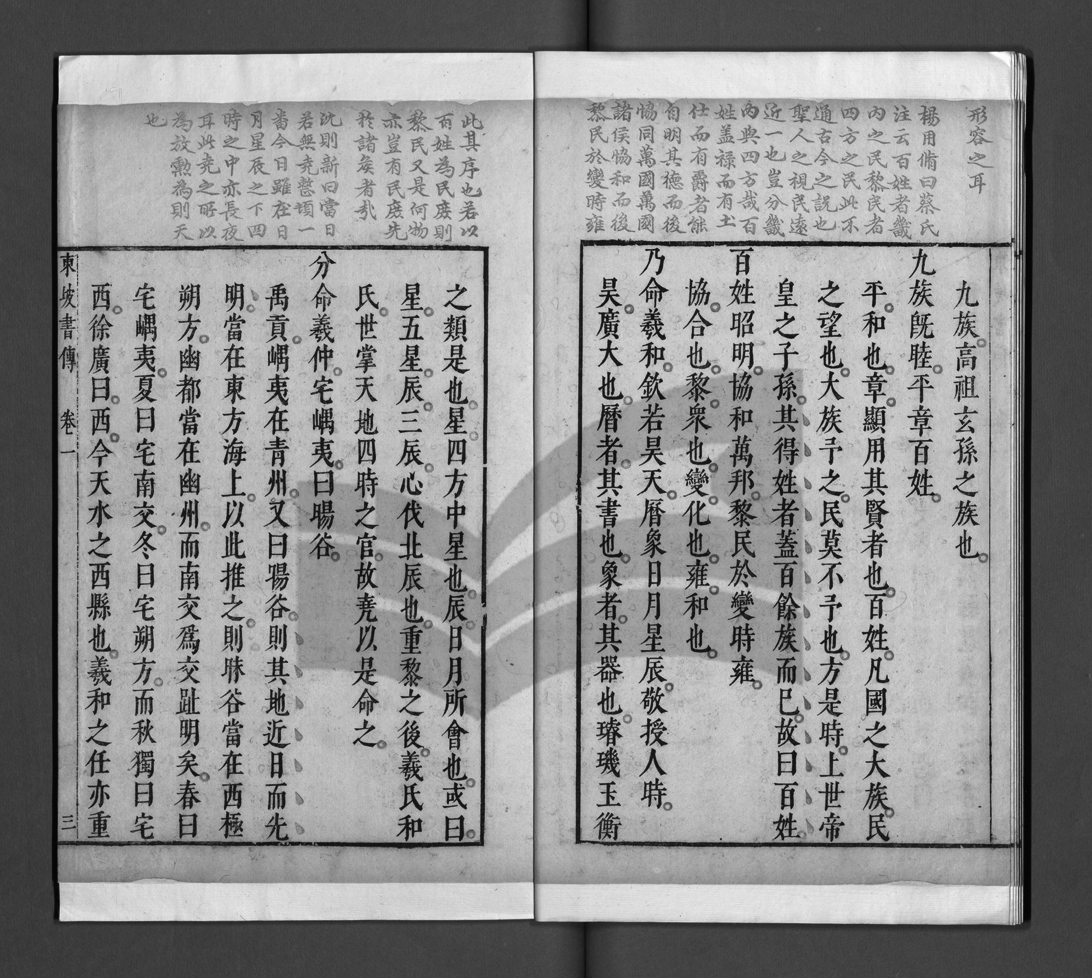 形容之耳
楊用脩曰蔡氏
注云百姓者畿
内之民黎民者
四方之民此不
通古今之説也
聖人之視民遠
近一也豈分畿
内與四方哉百
姓盖禄而有土
仕而有爵者能
自明其德而後
恊同萬國萬國
諸侯恊和而後
黎民於變時雍
九族高祖玄孫之族也
九族旣睦平章百姓
平和也章顯用其賢者也百姓凡國之大族民
之望也大族予之民莫不予也方是時上世帝
皇之子孫其得姓者蓋百餘族而巳故曰百姓
百姓昭明協和萬邦黎民於變時雍
協合也黎衆也變化也雍和也
乃命羲和欽若昊天曆象日月星辰敬授人時
昊廣大也曆者其書也象者其器也璿璣玉衡
此其序也若以
百姓為民庶則
黎民又是何物
亦豈有民庶先
於諸矦者哉
沈則新曰當日
若無堯整頓一
畨今日雖在日
月星辰之下四
時之中亦長夜
耳此堯之所以
為放勲為則天
也
之類是也星四方中星也辰日月所會也或曰
星五星辰三辰心伐北辰也重黎之後羲氏和
氏世掌天地四時之官故堯以是命之
分命羲仲宅嵎夷曰暘谷
禹貢嵎夷在青州又曰暘谷則其地近日而先
明當在東方海上以此推之則昧谷當在西極
朔方幽都當在幽州而南交爲交趾明矣春曰
宅嵎夷夏曰宅南交冬曰宅朔方而秋獨曰宅
西徐廣曰西今天水之西縣也羲和之任亦重
東坡書傳 卷一 三